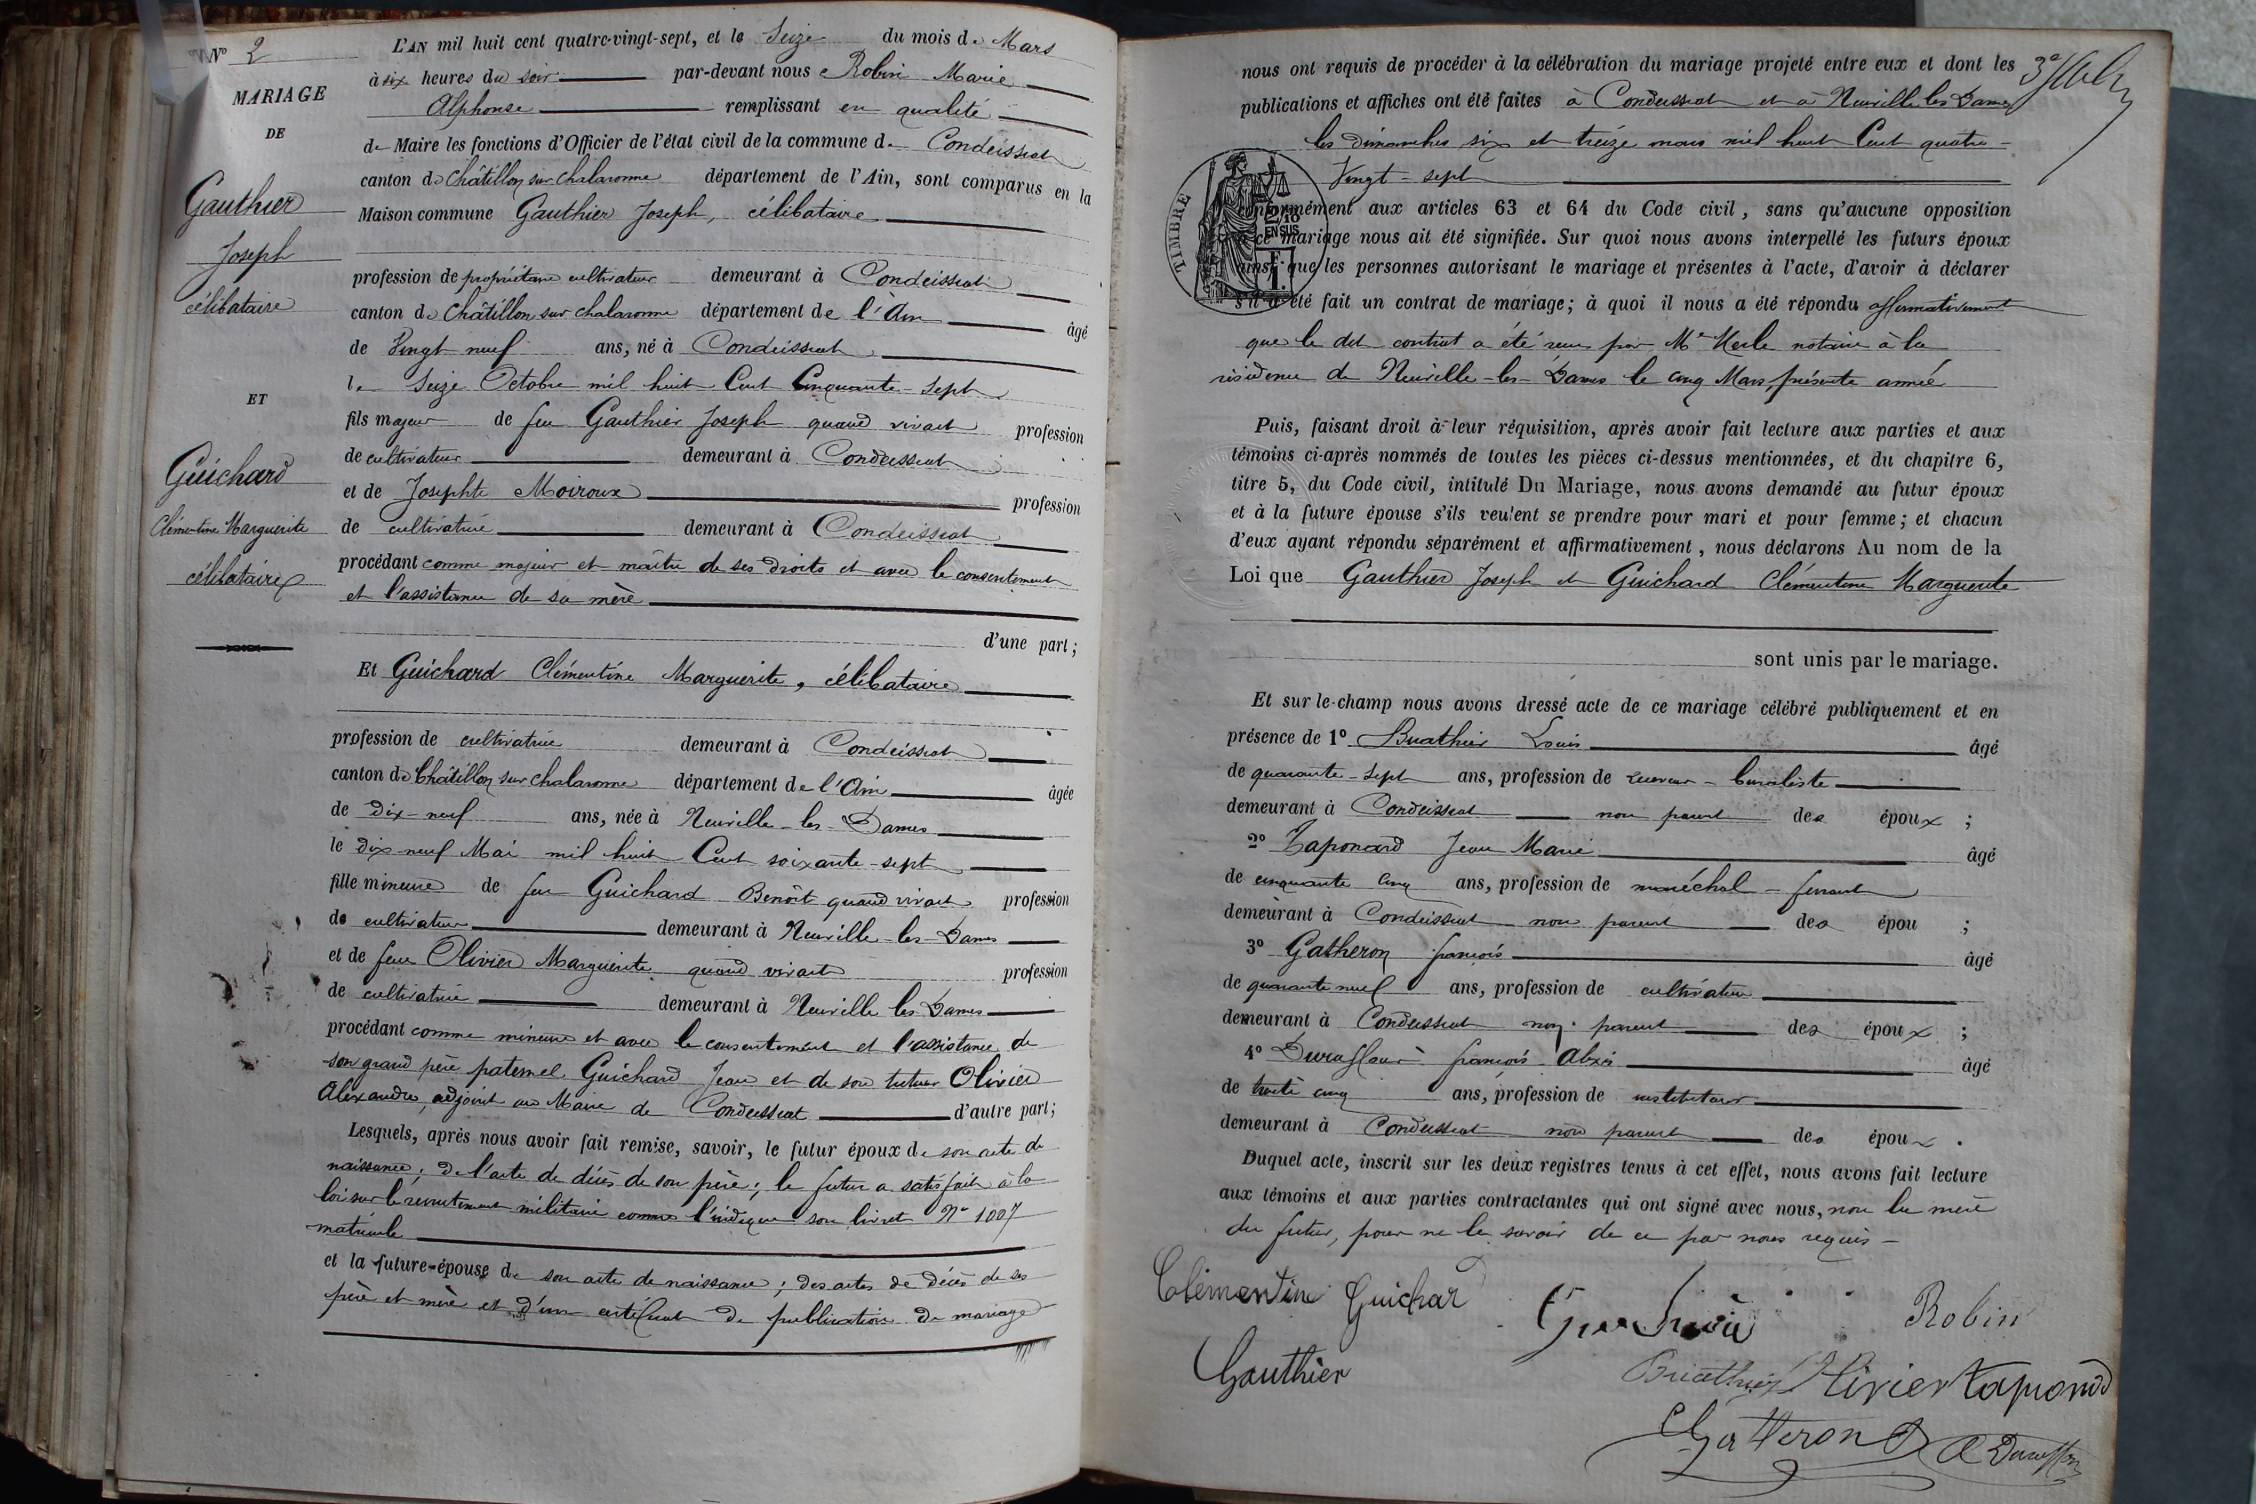 N° 2
MARIAGE
DE
Gauthier
Joseph
célibataire
ET
Guichard
Clémentine Marguerite
célibataire
L'AN mil huit cent quatre-vingt-sept, et le Seize du mois de Mars
à six heures du soir par-devant nous Robin Marie
Alphonse remplissant en qualité
de Maire les fonctions d'Officier de l'état civil de la commune de Condeissiat
canton de Châtillon sur Chalaronne département de l'Ain, sont comparus en la
Maison commune Gauthier Joseph, célibataire
profession de propriétaire cultivateur demeurant à Condeissiat
canton de Châtillon sur Chalaronne département de l'Ain âgé
de Vingt neuf ans, né à Condeissiat
le Seize Octobre mil huit Cent Cinquante-Sept
fils majeur de feu Gauthier Joseph quand vivait profession
de cultivateur demeurant à Condeissiat
et de Josephte Moiroux profession
de cultivatrice demeurant à Condeissiat
procédant comme majeur et maître de ses droits et avec le consentement
et l'assistance de sa mère
d'une part;
Et Guichard Clémentine Marguerite, célibataire
profession de cultivatrice demeurant à Condeissiat
canton de Châtillon sur Chalaronne département de l'Ain âgée
de Dix-neuf ans, née à Neuville-les-Dames
le dix neuf Mai mil huit Cent soixante-sept
fille mineure de feu Guichard Benoît quand vivait profession
de cultivateur demeurant à Neuville-les-Dames
et de feue Olivier Marguerite quand vivait profession
de cultivatrice demeurant à Neuville les Dames
procédant comme mineure et avec le consentement et l'assistance de
son grand père paternel Guichard Jean et de son tuteur Olivier
Alexandre, adjoint au Maire de Condeissiat d'autre part;
Lesquels, après nous avoir fait remise, savoir, le futur époux de son acte de
naissance; de l'acte de décès de son père; le futur a satisfait à la
loi sur le recrutement militaire comme l'indique son livret N° 1007
matricule
et la future-épouse de son acte de naissance; des actes de décès de ses
père et mère et d'un certificat de publication de mariage
nous ont requis de procéder à la célébration du mariage projeté entre eux et dont les
publications et affiches ont été faites à Condeissiat et à Neuville les Dames
les dimanches six et treize mars mil huit Cent quatre-
Vingt-sept
TIMBRE
2/10
EN SUS
conformément aux articles 63 et 64 du Code civil, sans qu'aucune opposition
à ce mariage nous ait été signifiée. Sur quoi nous avons interpellé les futurs époux
ainsi que les personnes autorisant le mariage et présentes à l'acte, d'avoir à déclarer
s'il a été fait un contrat de mariage; à quoi il nous a été répondu affirmativement
que le dit contrat a été reçu par Me Merle notaire à la
résidence de Neuville-les-Dames le cinq Mars, présente année
Puis, faisant droit à leur réquisition, après avoir fait lecture aux parties et aux
témoins ci-après nommés de toutes les pièces ci-dessus mentionnées, et du chapitre 6,
titre 5, du Code civil, intitulé Du Mariage, nous avons demandé au futur époux
et à la future épouse s'ils veulent se prendre pour mari et pour femme; et chacun
d'eux ayant répondu séparément et affirmativement, nous déclarons Au nom de la
Loi que Gauthier Joseph et Guichard Clémentine Marguerite
sont unis par le mariage.
Et sur-le-champ nous avons dressé acte de ce mariage célébré publiquement et en
présence de 1° Buathier Louis âgé
de quarante-sept ans, profession de receveur-buraliste
demeurant à Condeissiat non parent des époux;
2° Taponard Jean Marie âgé
de cinquante cinq ans, profession de maréchal-ferrant
demeurant à Condeissiat non parent des épou ;
3° Gatheron françois âgé
de quarante neuf ans, profession de cultivateur
demeurant à Condeissiat non parent des époux;
4° françois Alexis âgé
de trente cinq ans, profession de instituteur
demeurant à Condeissiat non parent des époux.
Duquel acte, inscrit sur les deux registres tenus à cet effet, nous avons fait lecture
aux témoins et aux parties contractantes qui ont signé avec nous, non la mère
du futur, pour ne le savoir de ce par nous requis-
Clémentine Guichard Robin
Gauthier Buathier Olivier Taponard
Gatheron